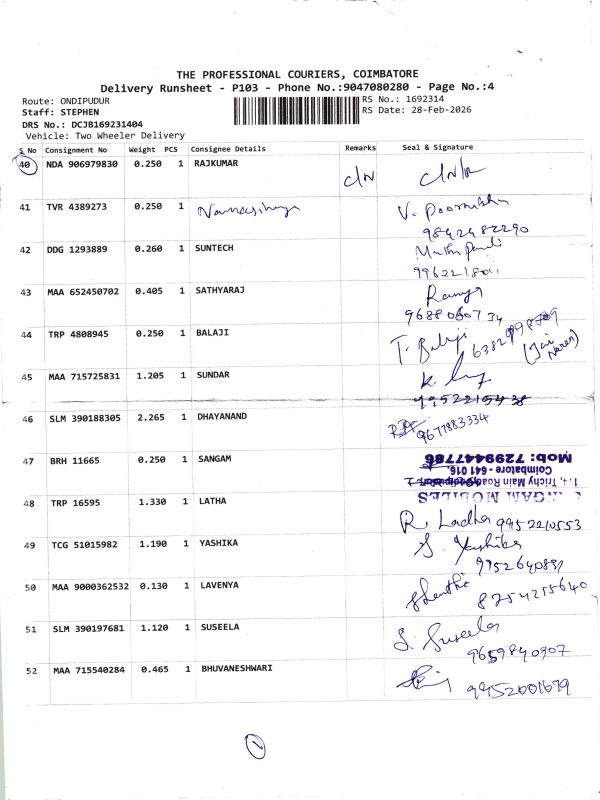 THE PROFESSIONAL COURIERS, COIMBATORE
Delivery Runsheet - P103 - Phone No.:9047080280 - Page No.:4
Route: ONDIPUDUR
RS No.: 1692314
Staff: STEPHEN
RS Date: 28-Feb-2026
DRS No.: DCJB169231404
Vehicle: Two Wheeler Delivery
S No Consignment No Weight PCS Consignee Details Remarks Seal & Signature
40 NDA 906979830 0.250 1 RAJKUMAR
41 TVR 4389273 0.250 1 V. Poornisha
9842482290
42 DDG 1293889 0.260 1 SUNTECH
43 MAA 652450702 0.405 1 SATHYARAJ Ramya
9688060734
44 TRP 4808945 0.250 1 BALAJI T. Balaji
45 MAA 715725831 1.205 1 SUNDAR
46 SLM 390188305 2.265 1 DHAYANAND 9677883334
47 BRH 11665 0.250 1 SANGAM
Mob: 7299447786
Coimbatore - 641 016.
Trichy Main Road
NGAM MOBILES
48 TRP 16595 1.330 1 LATHA R. Ladha 9952210553
49 TCG 51015982 1.190 1 YASHIKA S. Yashika
50 MAA 9000362532 0.130 1 LAVENYA 8254255640
51 SLM 390197681 1.120 1 SUSEELA S. Suseela
9659840907
52 MAA 715540284 0.465 1 BHUVANESHWARI 9952001679
1